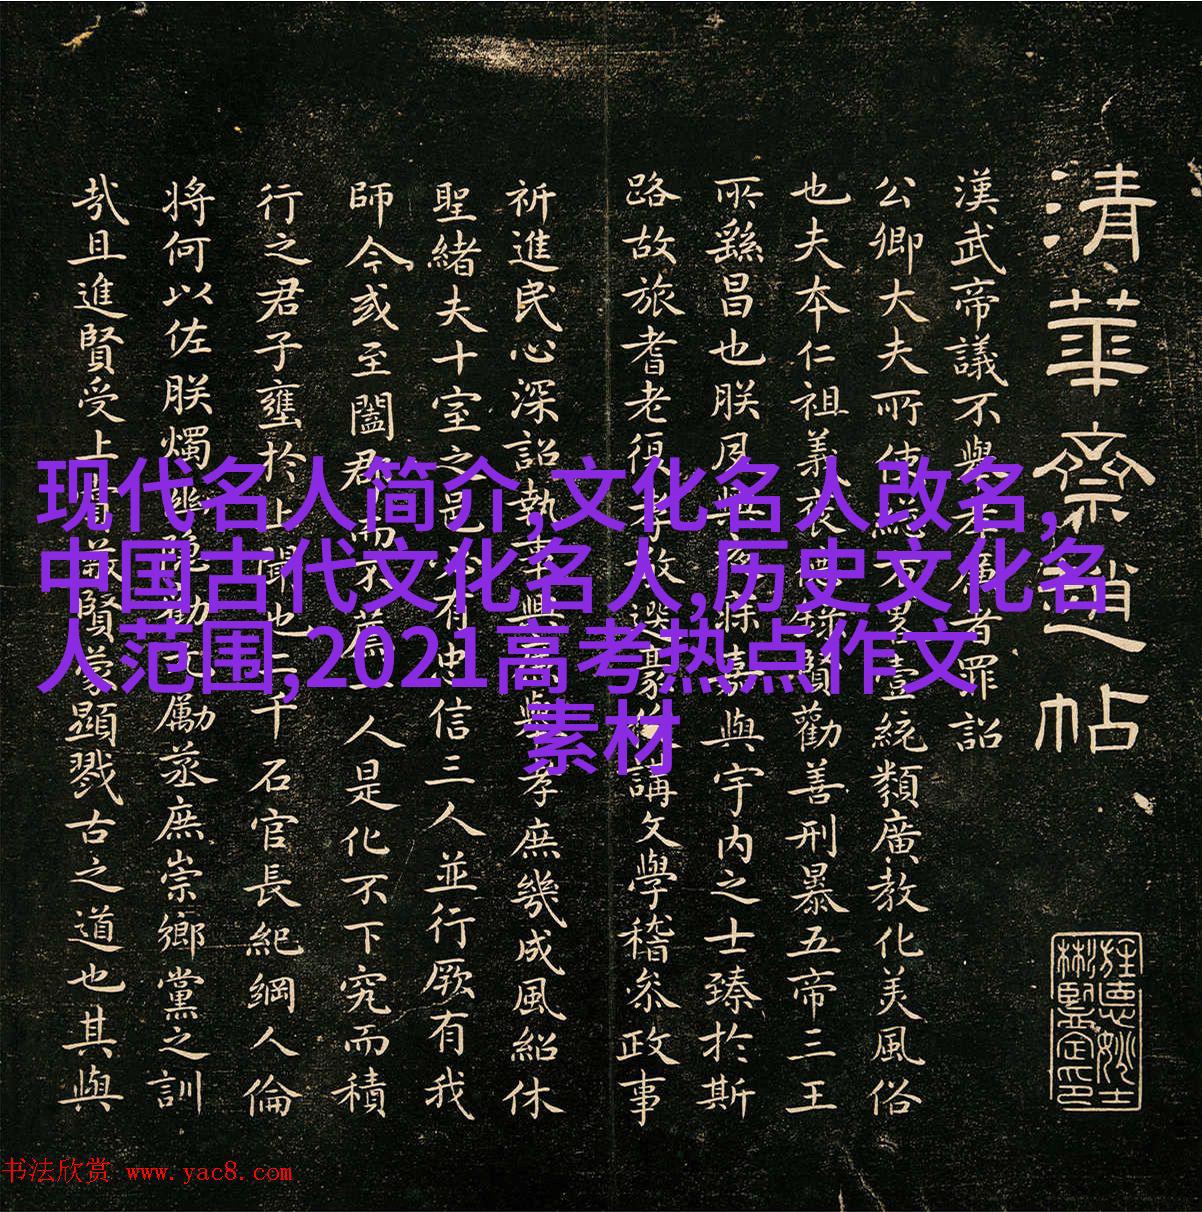 清華齋趙帖
漢武帝議不舉者罪詔
公卿大夫所使總方略壹統類廣教化美風俗
也夫本仁祖義褒德祿賢勸善刑暴五帝三王
所繇昌也朕夙興夜寐嘉與宇内之士臻於斯
路故旅耆老復孝敬選豪俊講文學稽参政事
祈進民心深詔執事興廉舉孝庶幾成風紹休
聖緒夫十室之邑必有忠信三人並行厥有我
師今或至闔郡而不薦一人是化不下究而積
行之君子壅於上聞也二千石官長紀綱人倫
將何以佐朕燭幽隱勸元元厲蒸庶崇鄉黨之訓
哉且進賢受上賞蔽賢蒙顯戮古之道也其與
现代名人简介,文化名人改名,
中国古代文化名人,历史文化名
人范围,2021高考热点作文
素材
书法欣赏 www.yac8.com